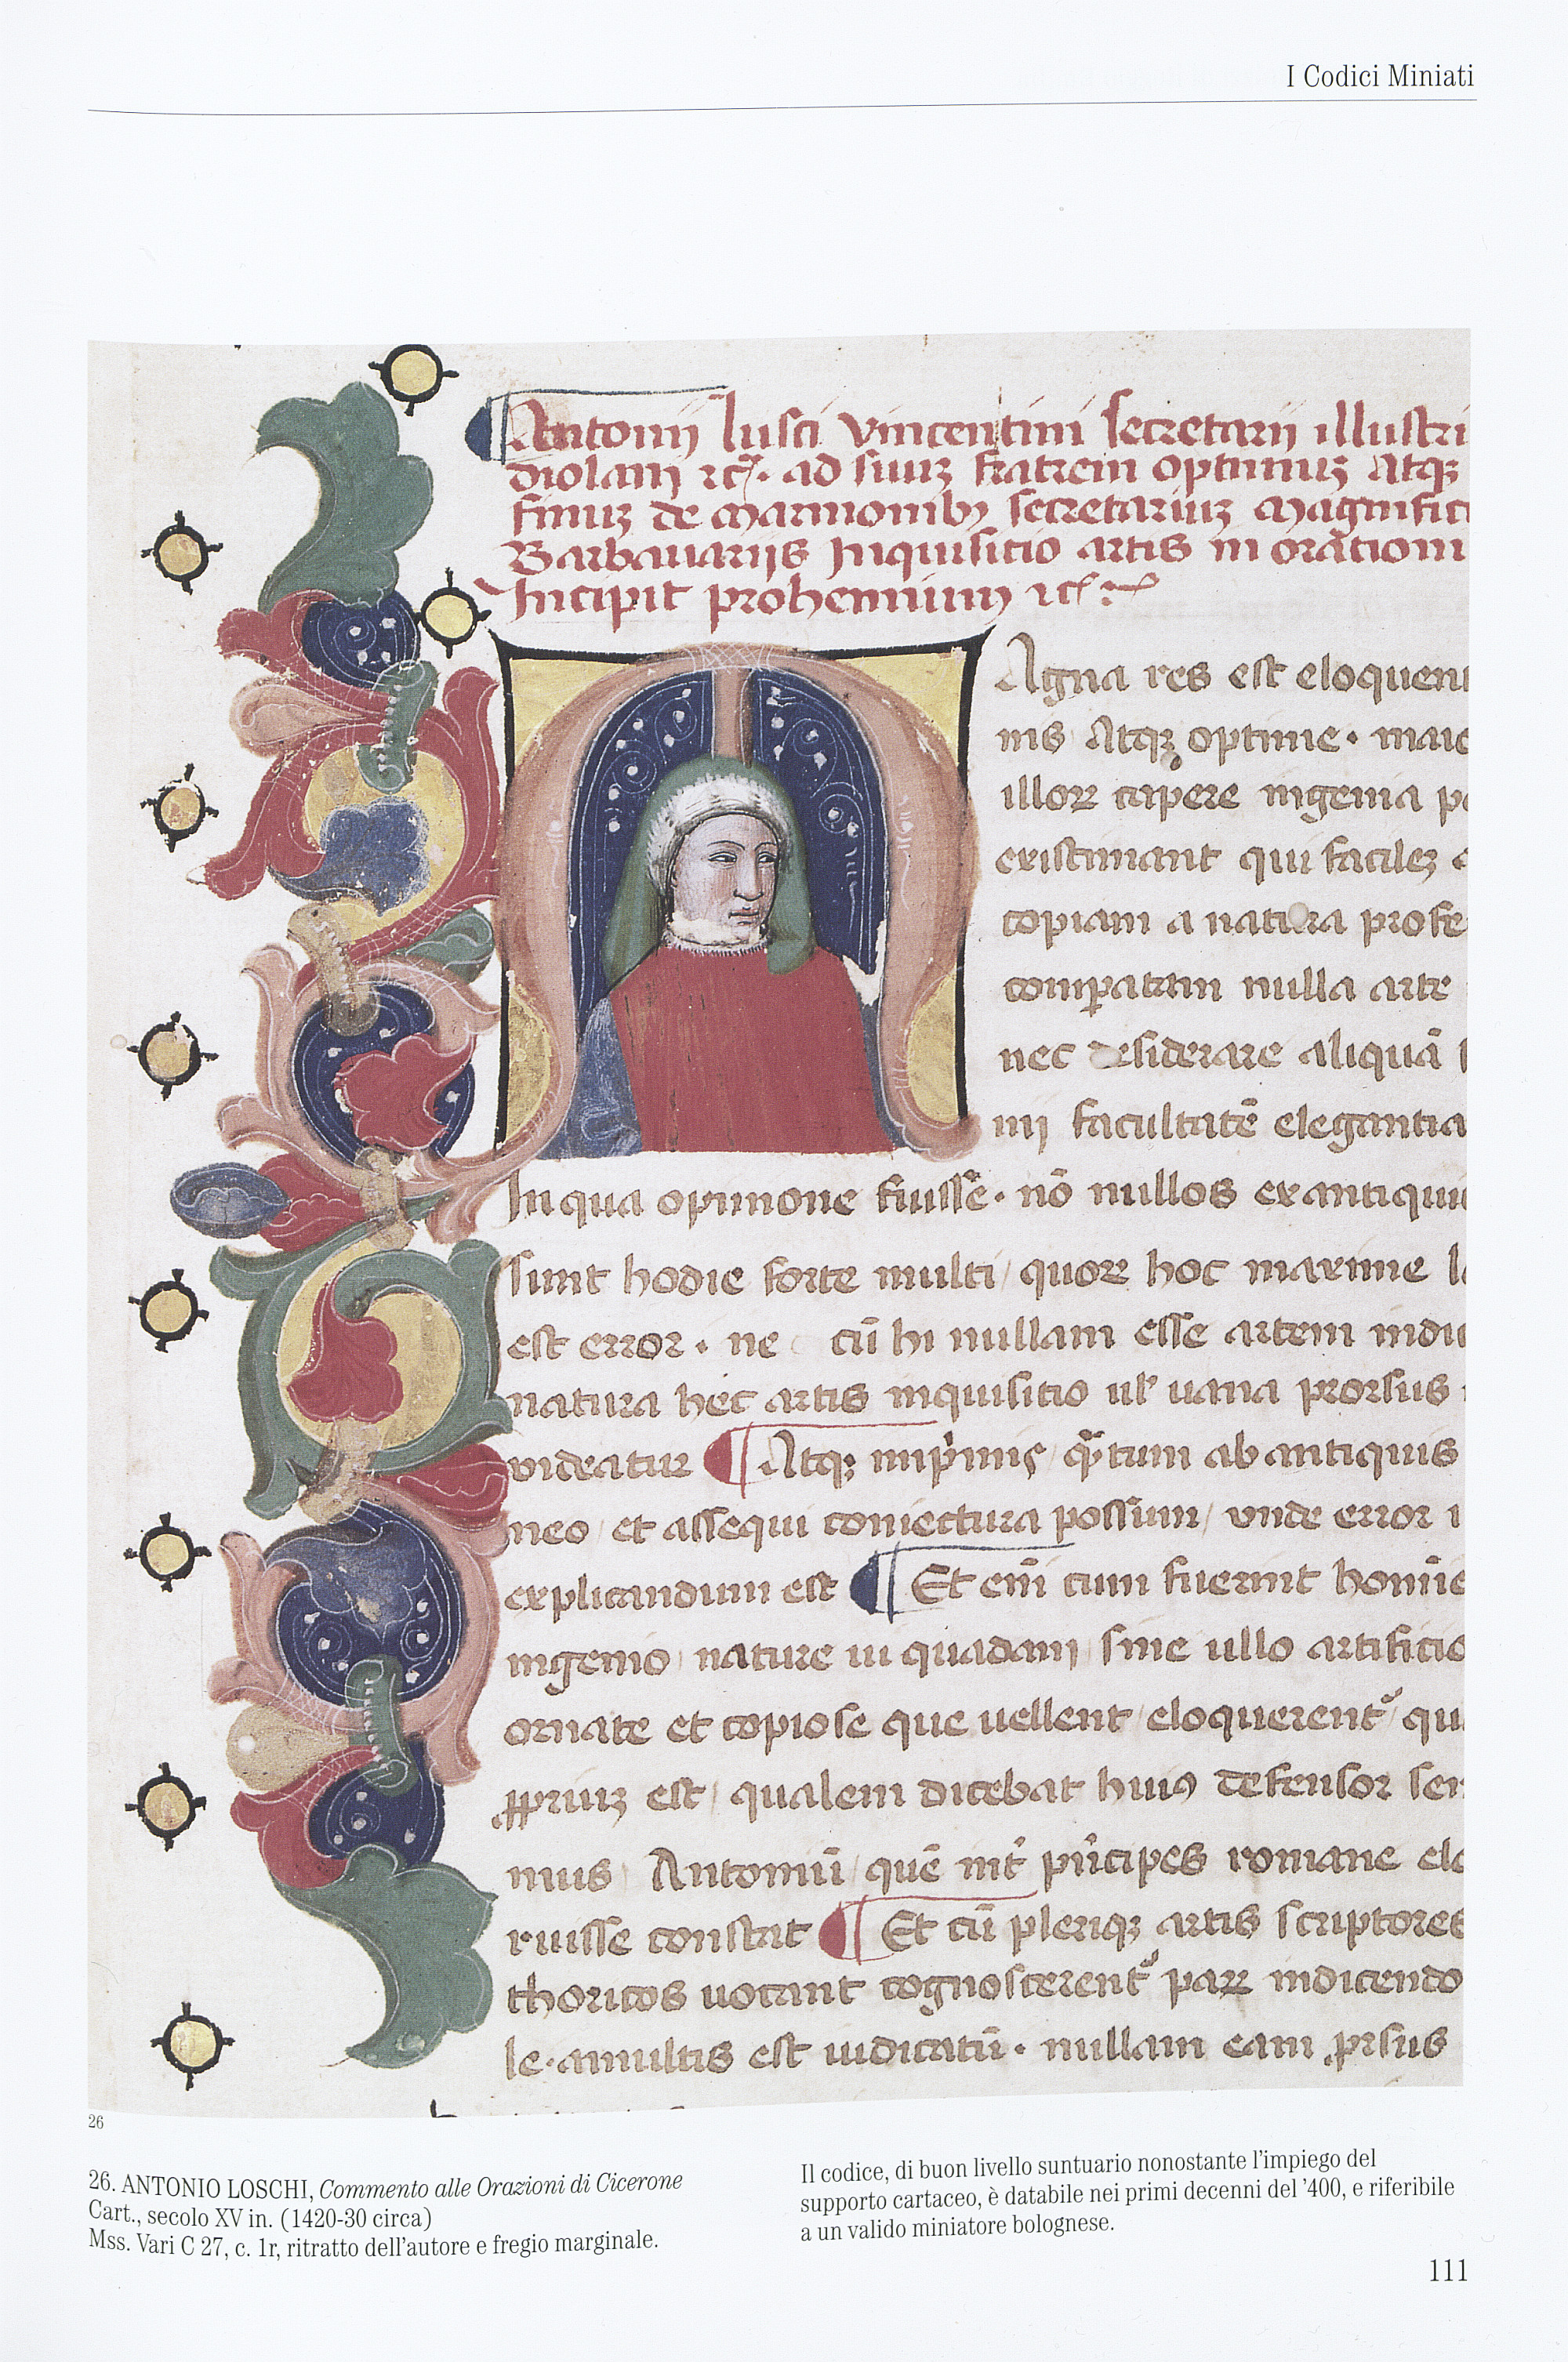 I Codici Miniati
Antonij lusci vincentini secretarij illustri
diolani ⁊c̃. ad suuȝ fratrem optimuȝ Atqȝ
simuȝ de marmonibꝰ secretariuȝ Magnifici
Barbauarijs Inquisitio artis in orationi
Incipit prohemium ⁊c̃.
Agna res est eloquen
nis Atqȝ optime · maio
illoꝝ capere ingenia p
existimant qui facileȝ
copiam a natura profe
comꝑatam nulla arte
nec desiderare aliquā
mj facultatē elegantia
In qua opinione fuisse · nō nullos ex antiqui
sunt hodie forte multi / quoꝝ hoc maxime l
est error · ne cū hi nullam esse artem indu
natura hec artis inquisitio ul' uana prorsus
videatur ¶ Atqȝ inprimis / q̃tum ab antiquis
neo / et assequi coniectura possum / vnde error i
explicandum est ¶ Et enī cum fuerint homīe
ingenio / nature ui quadam / sine ullo artificio
ornate et copiose que uellent / eloquerent᷑ qu
ꝓpriuȝ est / qualem dicebat huiꝰ defensor sen
mus Antoniū / quē int̾ pncipes romane elo
ruisse constat ¶ Et cū pleriqȝ artis scriptores
thoricos uocant cognoscerent᷑ parꝝ indicendo
le · amultis est iudicatū · nullam eam ꝓrsus
26
26. ANTONIO LOSCHI, Commento alle Orazioni di Cicerone
Cart., secolo XV in. (1420-30 circa)
Mss. Vari C 27, c. 1r, ritratto dell'autore e fregio marginale.
Il codice, di buon livello suntuario nonostante l'impiego del
supporto cartaceo, è databile nei primi decenni del '400, e riferibile
a un valido miniatore bolognese.
111